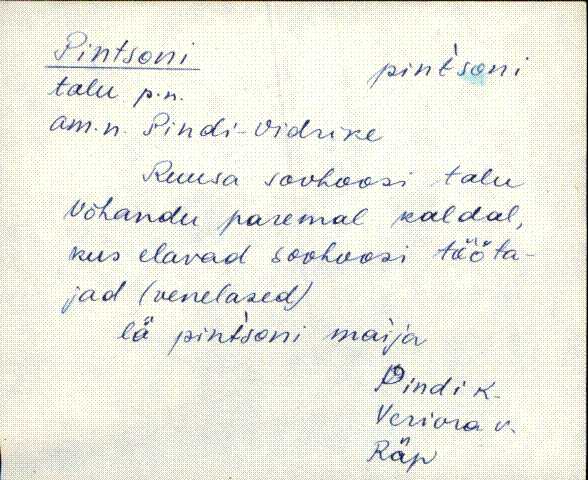 Pintsoni
pint̀soni
talu p.n.
am.n. Pindi-Vidrike
Ruusa sovhoosi talu
Võhandu paremal kaldal,
kus elavad sovhoosi rööta-
jad (venelased)
lä pint̀soni maìja
Pindi k.
Veriora v.
Räp